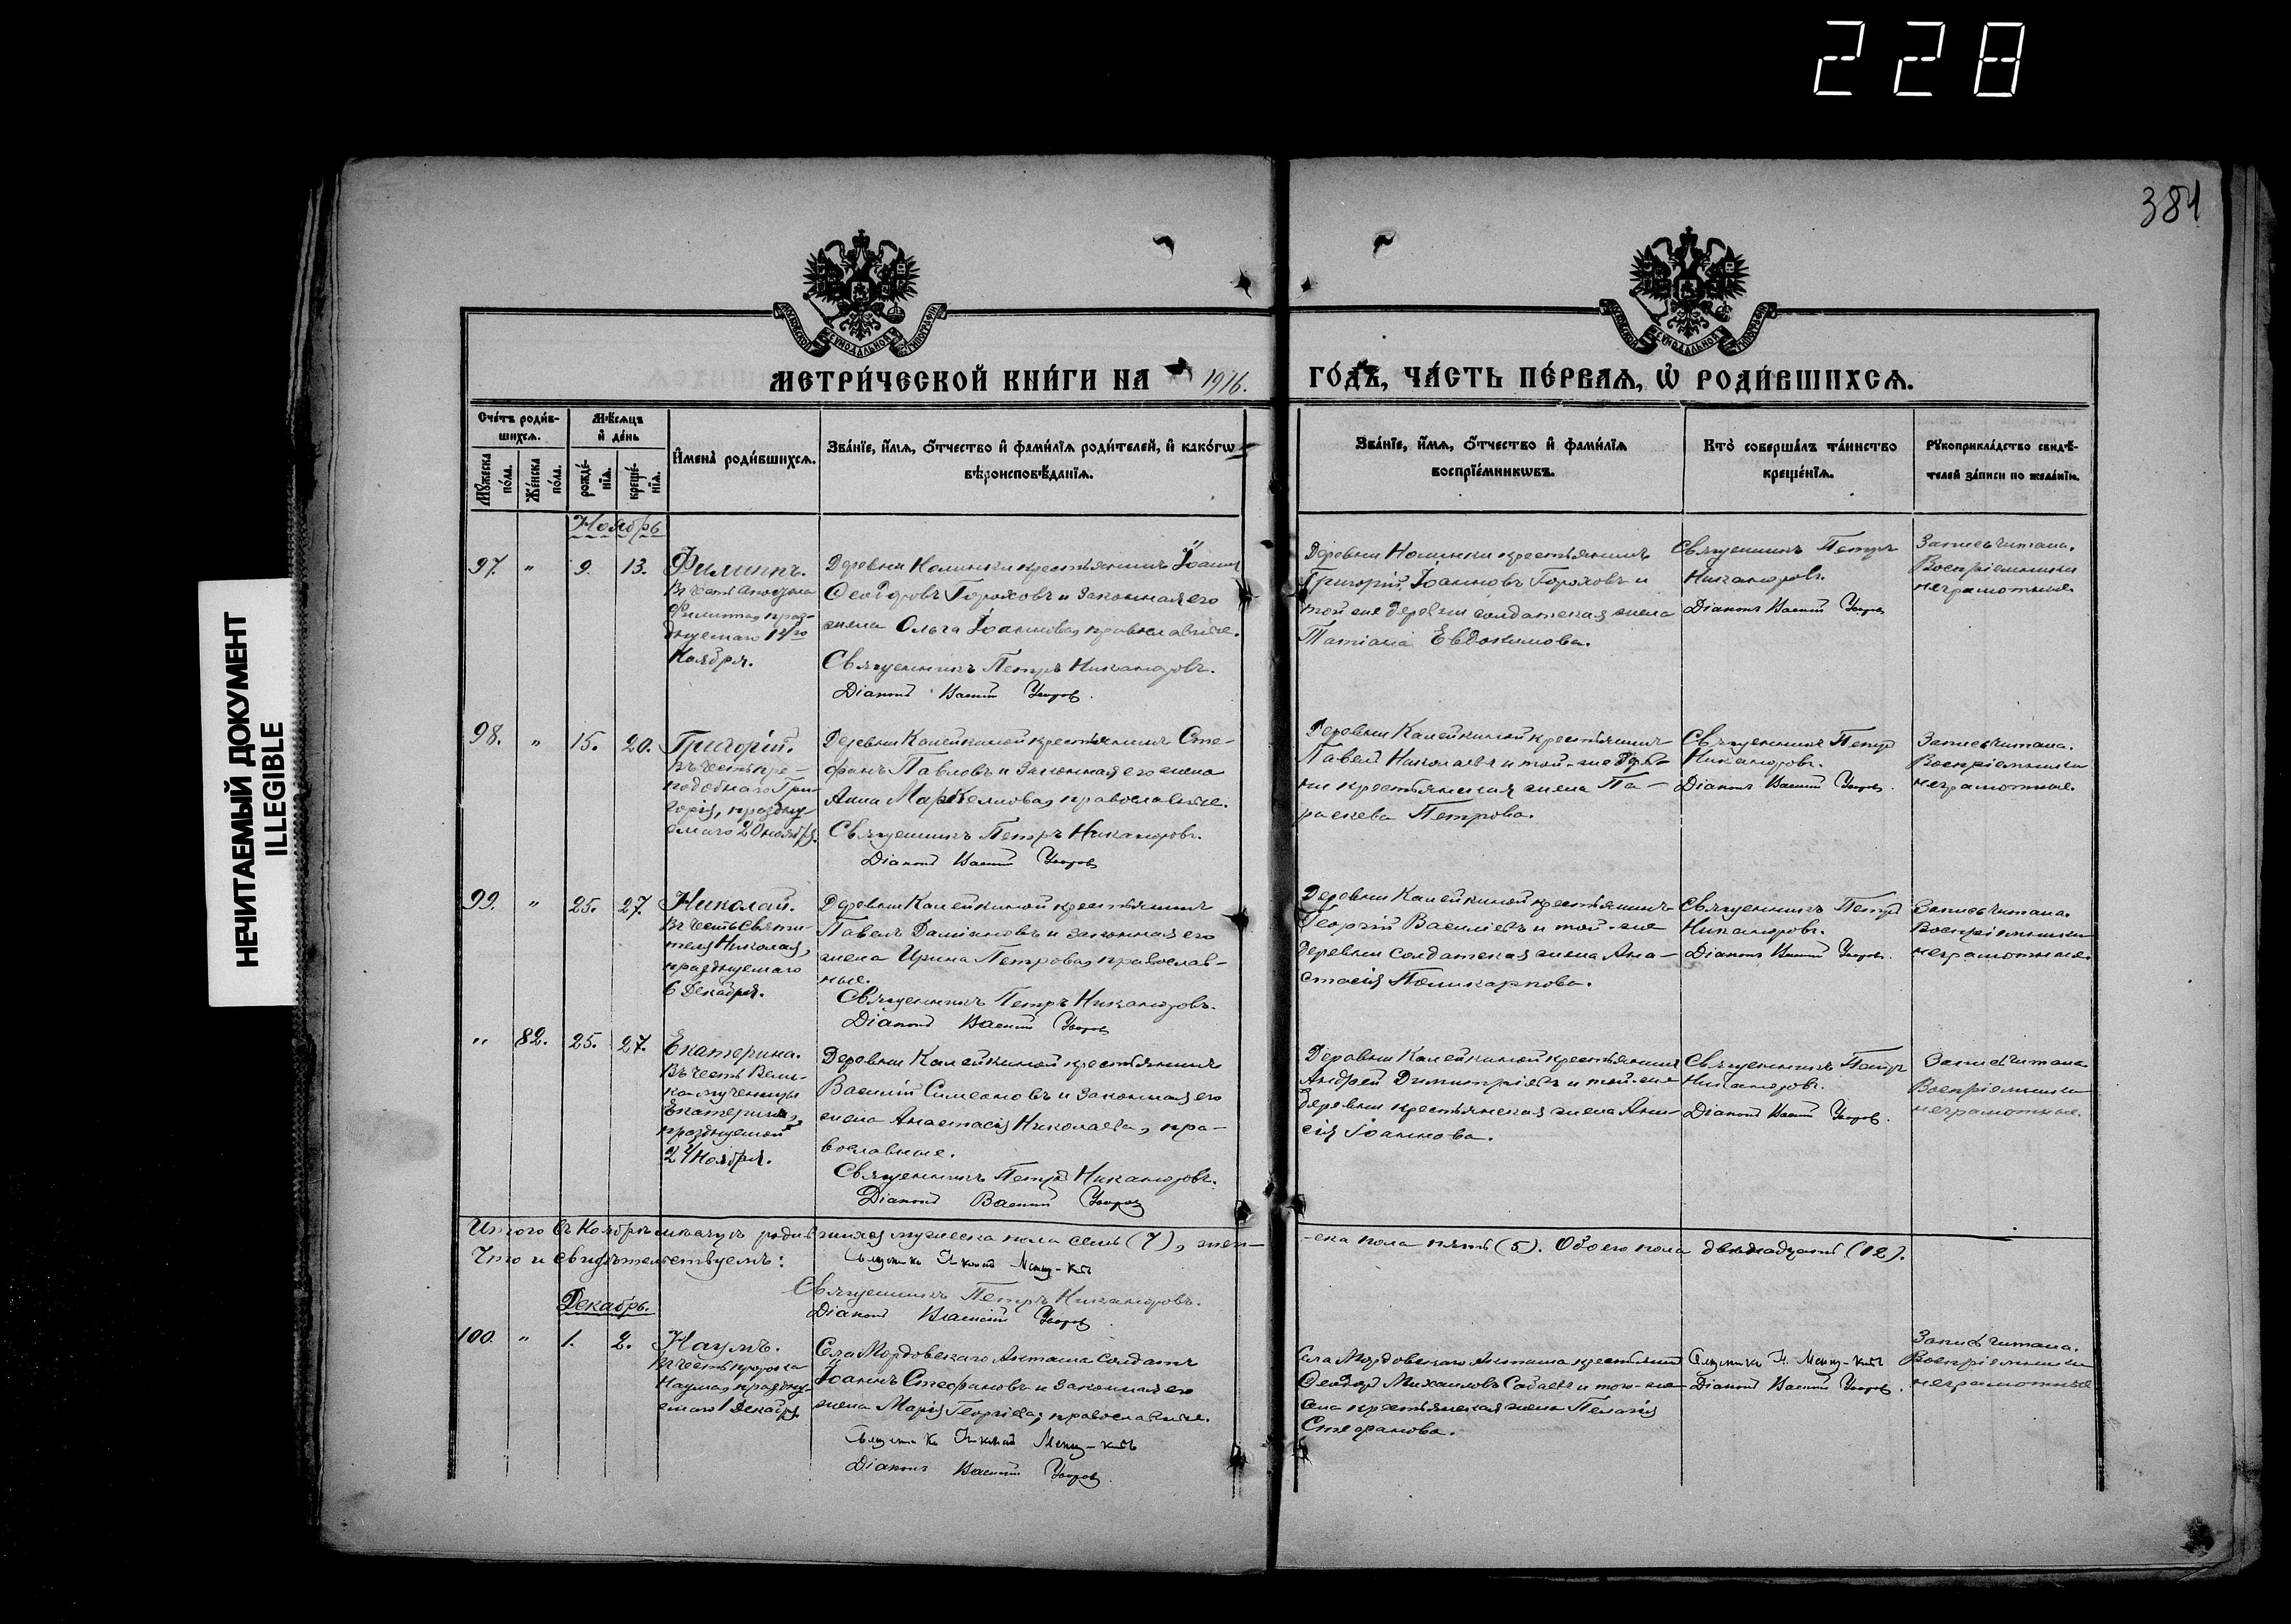 228
384
НЕЧИТАЕМЫЙ ДОКУМЕНТ
ILLEGIBLE
МОСКОВСКОЙ СУНОДАЛЬНОЙ ТУПОГРАФІИ
МОСКОВСКОЙ СУНОДАЛЬНОЙ ТУПОГРАФІИ
МЕТРИ́ЧЕСКОЙ КНИ́ГИ НА 1916.
ГО́ДЪ, ЧА́СТЬ ПЕ́РВАѦ, Ѽ РОДИ́ВШИХСѦ.
Сче́тъ роди́в-
шихсѧ.
Мꙋ́жеска
по́ла.
Же́нска
по́ла.
Мѣ́сѧцъ
и҆ де́нь
рожде́-
нїѧ.
креще́-
нїѧ.
И҆мена̀ роди́вшихсѧ.
Зва́нїе, и҆́мѧ, ѻ҆́тчество и҆ фами́лїѧ роди́телей, и҆ како́гѡ
вѣроисповѣ́данїѧ.
Зва́нїе, и҆́мѧ, ѻ҆́тчество и҆ фами́лїѧ
воспрїе́мникѡвъ.
Кто̀ соверша́лъ та́инство
креще́нїѧ.
Рꙋкоприкла́дство свидѣ́-
телей за́писи по жела́нїю.
Ноябрь
97. " 9. 13.
Филиппъ.
Въ честь апостола
Филиппа, празд-
днуемаго 14го
Ноября.
Деревни крестьянинъ Іоаннъ
Ѳеодоровъ Гороховъ и законная его
жена Ольга Іоаннова, православные.
Священникъ Петръ Никаноровъ.
Діаконъ Василій
Деревни крестьянинъ
Григорій Іоанновъ Гороховъ и
той же деревни солдатская жена
Татіана Евдокимова.
Священникъ Петръ
Никаноровъ.
Діаконъ Василій
Запись читана.
Воспріемники
неграмотные.
98. " 15. 20.
Григорій.
Въ честь пре-
подобнаго Гри-
горія, праздну-
емаго 20 ноября.
Деревни Калейкиной крестьянинъ Сте-
фанъ Павловъ и законная его жена
Анна Маркеллова, православные.
Священникъ Петръ Никаноровъ.
Діаконъ Василій
Деревни Калейкиной крестьянинъ
Павелъ Николаевъ и той-же дерев-
ни крестьянская жена Па-
раскева Петрова.
Священникъ Петръ
Никаноровъ.
Діаконъ Василій
Запись читана.
Воспріемники
неграмотные.
99. " 25. 27.
Николай.
Въ честь Святи-
теля Николая,
празднуемаго
6 Декабря.
Деревни Калейкиной крестьянинъ
Павелъ Даміановъ и законная его
жена Ирина Петрова, православ-
ные.
Священникъ Петръ Никаноровъ.
Діаконъ Василій
Деревни Калейкиной крестьянинъ
Георгій Василіевъ и той-же
деревни солдатская жена Ана-
стасія Поликарпова.
Священникъ Петръ
Никаноровъ.
Діаконъ Василій
Запись читана.
Воспріемники
неграмотные.
" 82. 25. 27.
Екатерина.
Въ честь Вели-
комученицы
Екатерины,
празднуемой
24 Ноября.
Деревни Калейкиной крестьянинъ
Василій Симеоновъ и законная его
жена Анастасія Николаева, пра-
вославные.
Священникъ Петръ Никаноровъ.
Діаконъ Василій
Деревни Калейкиной крестьянинъ
Андрей Димитріевъ и той-же
деревни крестьянская жена Ани-
сія Іоаннова.
Священникъ Петръ
Никаноровъ.
Діаконъ Василій
Запись читана.
Воспріемники
неграмотные.
Итого въ Ноябрѣ мѣсяцѣ родившихся мужеска пола семь (7), жен-
-ска пола пять (5). Обоего пола двѣнадцать (12).
Что и свидѣтельствуемъ:
Священникъ Петръ Никаноровъ.
Діаконъ Василій
Декабрь.
100. " 1. 2.
Наумъ.
Въ честь пророка
Наума, праздну-
емаго 1 Декабря.
Села Мордовскаго Акташа солдатъ
Іоаннъ Стефановъ и законная его
жена Марія Георгіева, православные.
Діаконъ Василій
Села Мордовскаго Акташа крестьянинъ
Ѳеодоръ Михаиловъ и того-же
села крестьянская жена Пелагія
Стефанова.
Діаконъ Василій
Запись читана.
Воспріемники
неграмотные